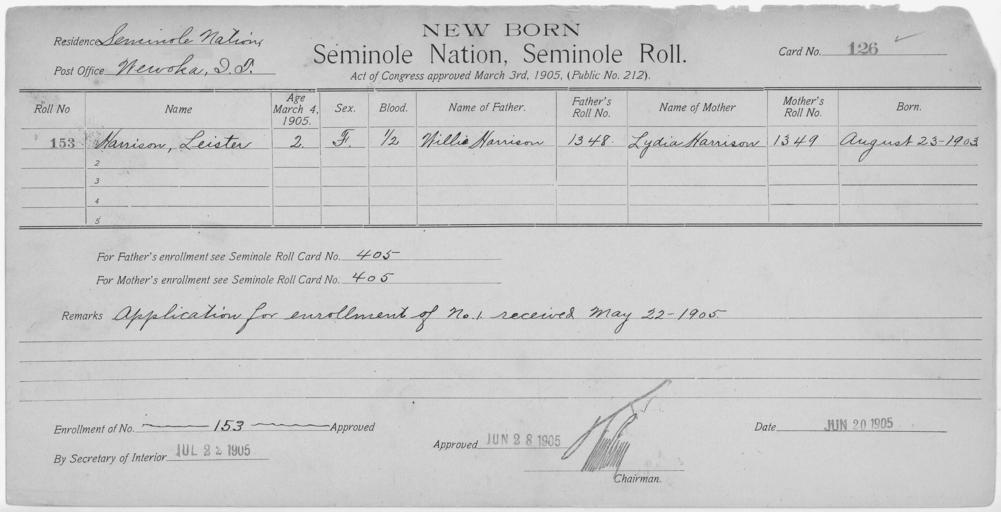 NEW BORN
Seminole Nation, Seminole Roll.
Act of Congress approved March 3rd, 1905, (Public No. 212).
Residence Seminole Nation,
Post Office Wewoka, I.T.
Card No. 126
Roll No Name Age March 4, 1905. Sex. Blood. Name of Father. Father's Roll No. Name of Mother Mother's Roll No. Born.
153 Harrison, Leister 2 F. 1/2 Willie Harrison 1348 Lydia Harrison 1349 August 23-1903
2
3
4
5
For Father's enrollment see Seminole Roll Card No. 405
For Mother's enrollment see Seminole Roll Card No. 405
Remarks Application for enrollment of No.1 received May 22-1905
Enrollment of No. 153 Approved
By Secretary of Interior JUL 22 1905
Approved JUN 28 1905
Chairman.
Date JUN 20 1905